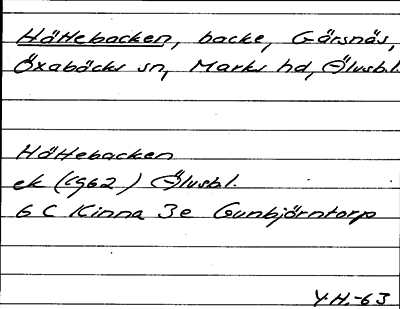 Hättebacken, backe, Gärsnäs,
Öxabäcks sn, Marks hd, Älvsbl.
Hättebacken
ek (1962) Älvsbl.
6 C Kinna 3e Gunbjörntorp
Y.H.-63